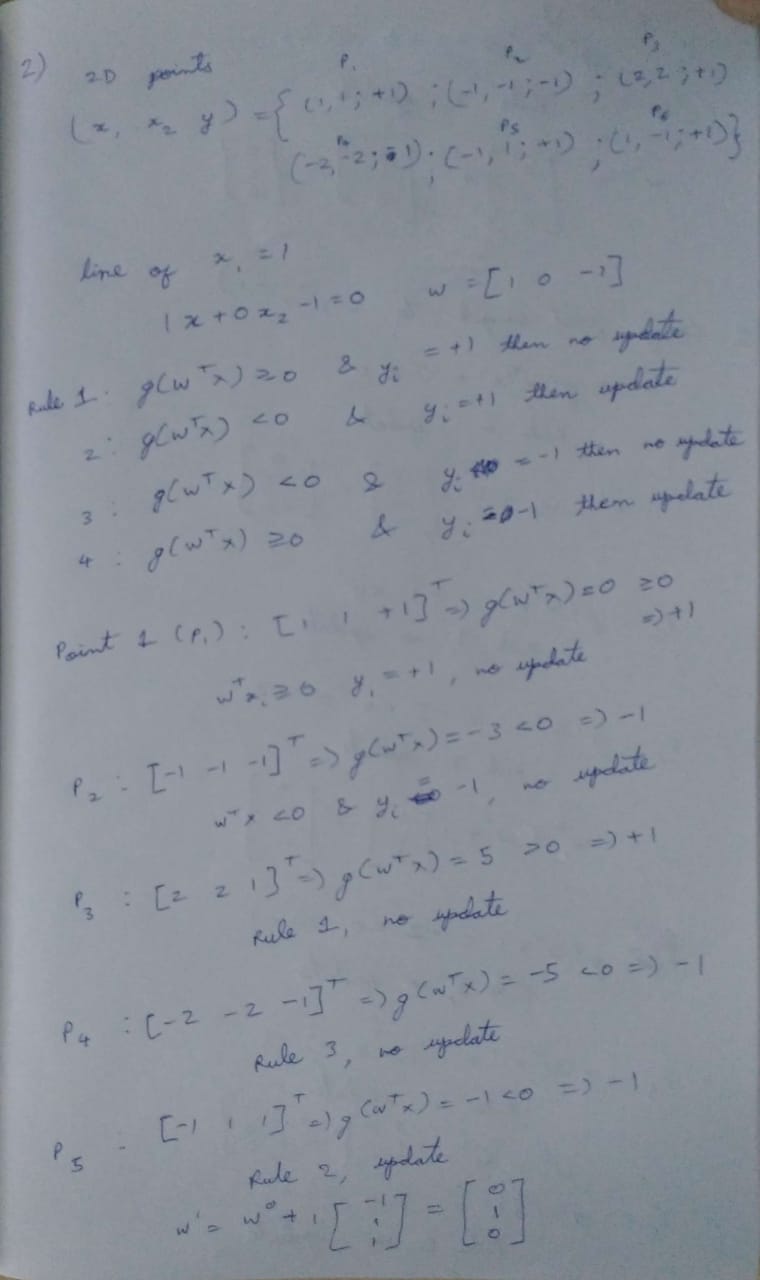 2) 2D points P1 P2 P3
(x1 x2 y) = { (1,1;+1) ; (-1,-1;-1) ; (2,2;+1)
P4 P5 P6
(-2,-2;-1); (-1,1;+1) ; (1,-1;+1)}
line of x1 = 1
1x + 0x2 - 1 = 0 w = [1 0 -1]
Rule 1: g(wᵀx) ≥ 0 & yi = +1 then no update
2: g(wᵀx) < 0 & yi = +1 then update
3: g(wᵀx) < 0 & yi = -1 then no update
4: g(wᵀx) ≥ 0 & yi = -1 then update
Point 1 (P1): [1 1 +1]ᵀ => g(wᵀx) = 0 ≥ 0
=> +1
wᵀx1 ≥ 0 y1 = +1, no update
P2: [-1 -1 -1]ᵀ => g(wᵀx) = -3 < 0 => -1
wᵀx < 0 & yi = -1, no update
P3 : [2 2 1]ᵀ => g(wᵀx) = 5 > 0 => +1
Rule 1, no update
P4 : [-2 -2 -1]ᵀ => g(wᵀx) = -5 < 0 => -1
Rule 3, no update
P5 : [-1 1 1]ᵀ => g(wᵀx) = -1 < 0 => -1
Rule 2, update
w¹ = w⁰ + 1 [-1 1 1] = [0 1 0]